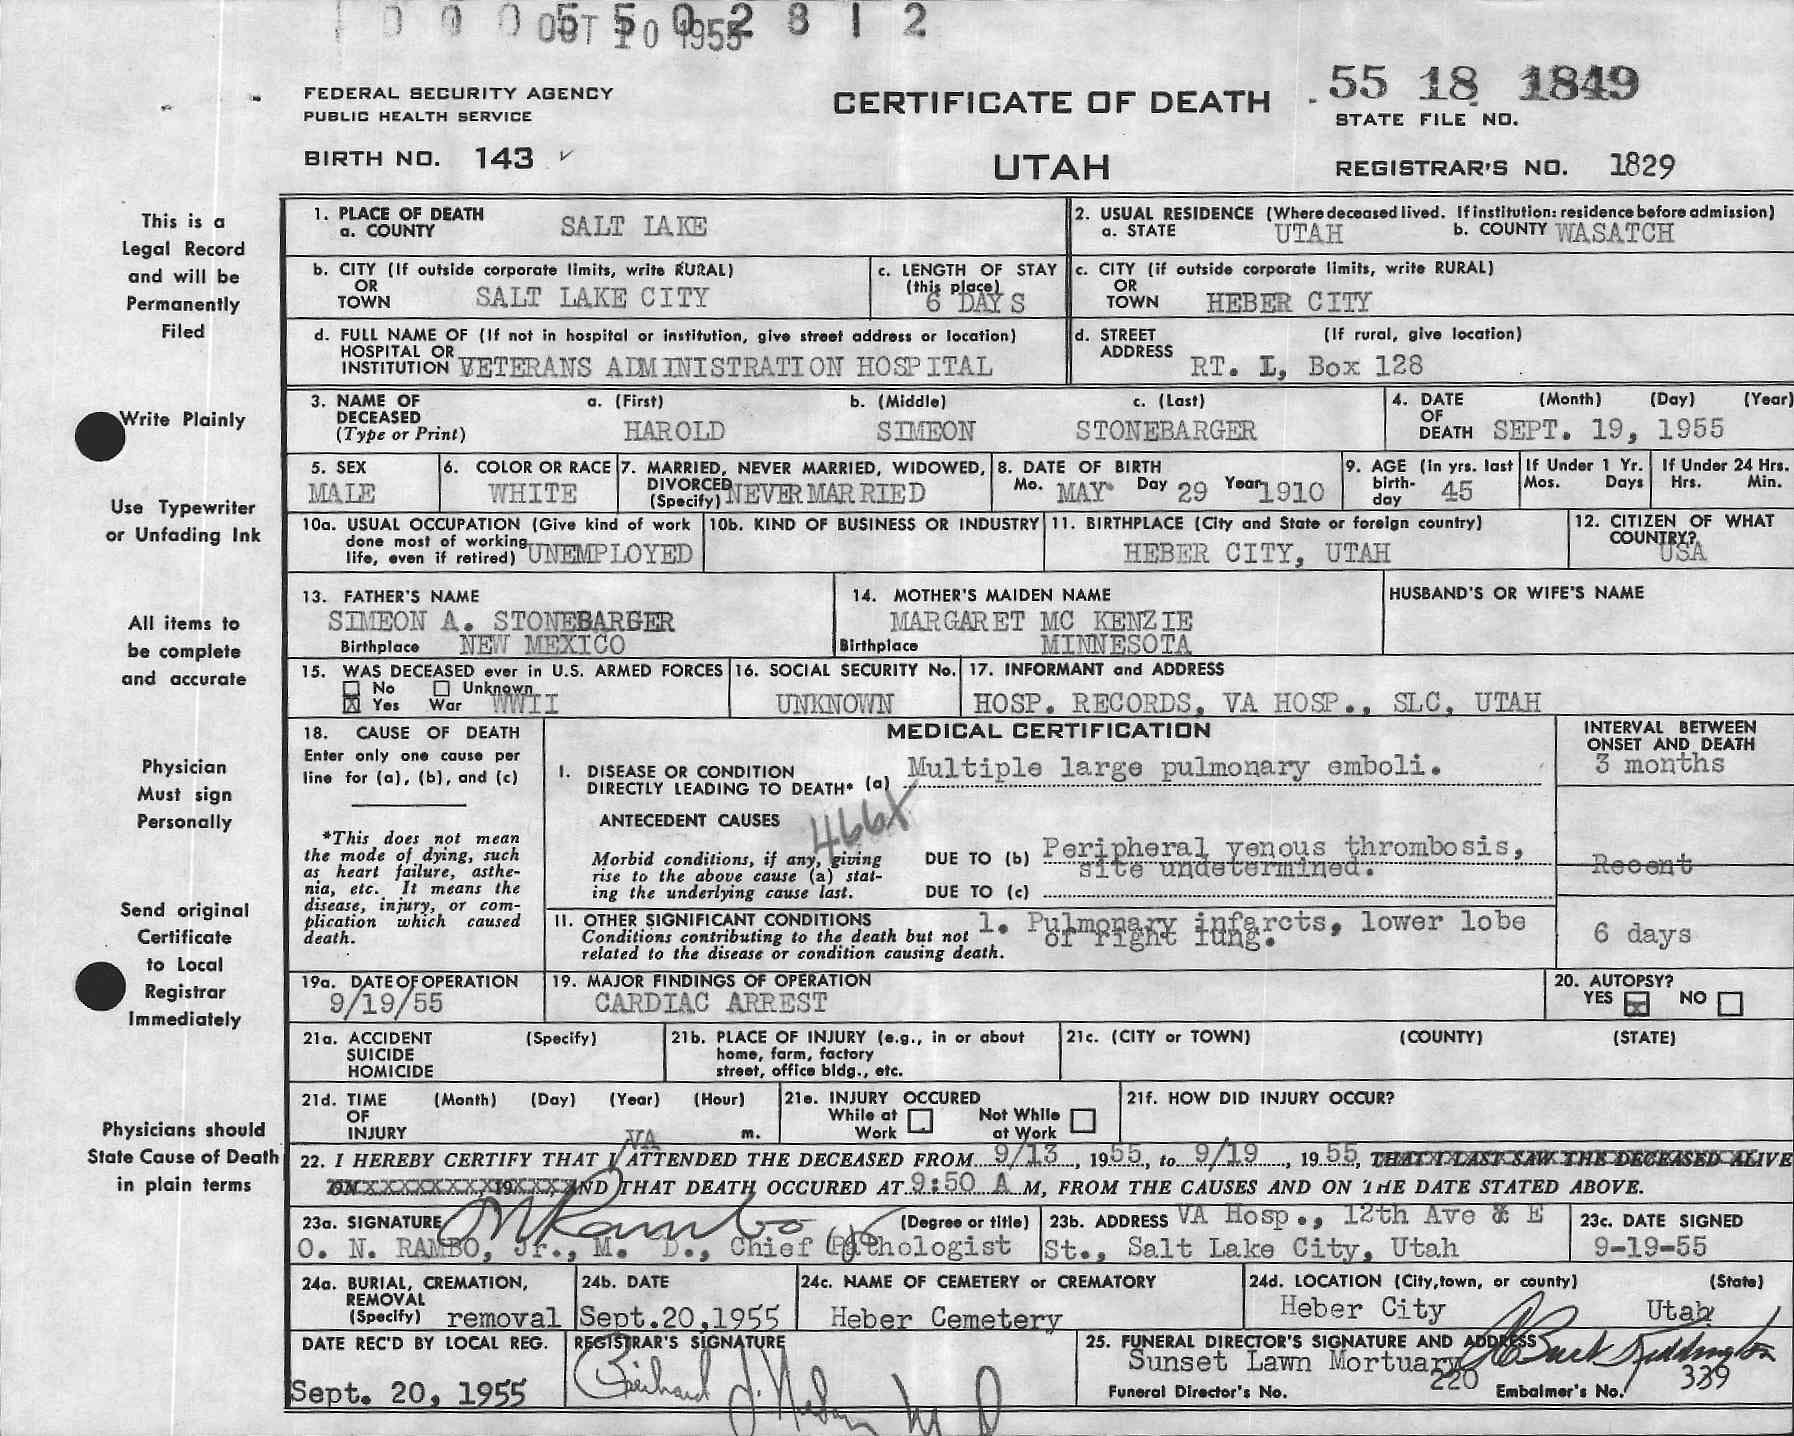 1 0 0 0 5 5 0 2 8 1 2
OCT 10 1955
FEDERAL SECURITY AGENCY
PUBLIC HEALTH SERVICE
CERTIFICATE OF DEATH
55 18 1849
STATE FILE NO.
BIRTH NO. 143
UTAH
REGISTRAR'S NO. 1829
This is a
Legal Record
and will be
Permanently
Filed
Write Plainly
Use Typewriter
or Unfading Ink
All items to
be complete
and accurate
Physician
Must sign
Personally
Send original
Certificate
to Local
Registrar
Immediately
Physicians should
State Cause of Death
in plain terms
1. PLACE OF DEATH
a. COUNTY SALT LAKE
2. USUAL RESIDENCE (Where deceased lived. If institution: residence before admission)
a. STATE UTAH b. COUNTY WASATCH
b. CITY (If outside corporate limits, write RURAL)
OR
TOWN SALT LAKE CITY
c. LENGTH OF STAY
(this place)
6 DAYS
c. CITY (if outside corporate limits, write RURAL)
OR
TOWN HEBER CITY
d. FULL NAME OF (If not in hospital or institution, give street address or location)
HOSPITAL OR
INSTITUTION VETERANS ADMINISTRATION HOSPITAL
d. STREET (If rural, give location)
ADDRESS RT. 1, Box 128
3. NAME OF a. (First) b. (Middle) c. (Last)
DECEASED
(Type or Print) HAROLD SIMEON STONEBARGER
4. DATE (Month) (Day) (Year)
OF
DEATH SEPT. 19, 1955
5. SEX
MALE
6. COLOR OR RACE
WHITE
7. MARRIED, NEVER MARRIED, WIDOWED,
DIVORCED
(Specify) NEVER MARRIED
8. DATE OF BIRTH
Mo. MAY Day 29 Year 1910
9. AGE (In yrs. last
birth-
day 45
If Under 1 Yr.
Mos. Days
If Under 24 Hrs.
Hrs. Min.
10a. USUAL OCCUPATION (Give kind of work
done most of working
life, even if retired) UNEMPLOYED
10b. KIND OF BUSINESS OR INDUSTRY
11. BIRTHPLACE (City and State or foreign country)
HEBER CITY, UTAH
12. CITIZEN OF WHAT
COUNTRY?
USA
13. FATHER'S NAME
SIMEON A. STONEBARGER
Birthplace NEW MEXICO
14. MOTHER'S MAIDEN NAME
MARGARET MC KENZIE
Birthplace MINNESOTA
HUSBAND'S OR WIFE'S NAME
15. WAS DECEASED ever in U.S. ARMED FORCES
No Unknown
X Yes War WWII
16. SOCIAL SECURITY No.
UNKNOWN
17. INFORMANT and ADDRESS
HOSP. RECORDS, VA HOSP., SLC, UTAH
18. CAUSE OF DEATH
Enter only one cause per
line for (a), (b), and (c)
*This does not mean
the mode of dying, such
as heart failure, asthe-
nia, etc. It means the
disease, injury, or com-
plication which caused
death.
MEDICAL CERTIFICATION
INTERVAL BETWEEN
ONSET AND DEATH
I. DISEASE OR CONDITION
DIRECTLY LEADING TO DEATH* (a) Multiple large pulmonary emboli.
3 months
ANTECEDENT CAUSES
466X
Morbid conditions, if any, giving
rise to the above cause (a) stat-
ing the underlying cause last.
DUE TO (b) Peripheral venous thrombosis,
site undetermined.
Recent
DUE TO (c)
II. OTHER SIGNIFICANT CONDITIONS
Conditions contributing to the death but not
related to the disease or condition causing death.
1. Pulmonary infarcts, lower lobe
of right lung.
6 days
19a. DATE OF OPERATION
9/19/55
19. MAJOR FINDINGS OF OPERATION
CARDIAC ARREST
20. AUTOPSY?
YES X NO
21a. ACCIDENT (Specify)
SUICIDE
HOMICIDE
21b. PLACE OF INJURY (e.g., in or about
home, farm, factory
street, office bldg., etc.
21c. (CITY or TOWN) (COUNTY) (STATE)
21d. TIME (Month) (Day) (Year) (Hour)
OF
INJURY m.
21e. INJURY OCCURED
While at Work
Not While at Work
21f. HOW DID INJURY OCCUR?
VA
22. I HEREBY CERTIFY THAT I ATTENDED THE DECEASED FROM 9/13, 1955, to 9/19, 1955, THAT I LAST SAW THE DECEASED ALIVE
ON XXXXXXXX, 19XXXX, AND THAT DEATH OCCURED AT 9:50 A M, FROM THE CAUSES AND ON THE DATE STATED ABOVE.
23a. SIGNATURE ON Rambo Jr (Degree or title)
O. N. RAMBO, Jr., M. D., Chief Pathologist
23b. ADDRESS VA Hosp., 12th Ave & E
St., Salt Lake City, Utah
23c. DATE SIGNED
9-19-55
24a. BURIAL, CREMATION,
REMOVAL
(Specify) removal
24b. DATE
Sept. 20, 1955
24c. NAME OF CEMETERY or CREMATORY
Heber Cemetery
24d. LOCATION (City, town, or county) (State)
Heber City Utah
DATE REC'D BY LOCAL REG.
Sept. 20, 1955
REGISTRAR'S SIGNATURE
25. FUNERAL DIRECTOR'S SIGNATURE AND ADDRESS
Sunset Lawn Mortuary
Funeral Director's No. 220 Embalmer's No. 339